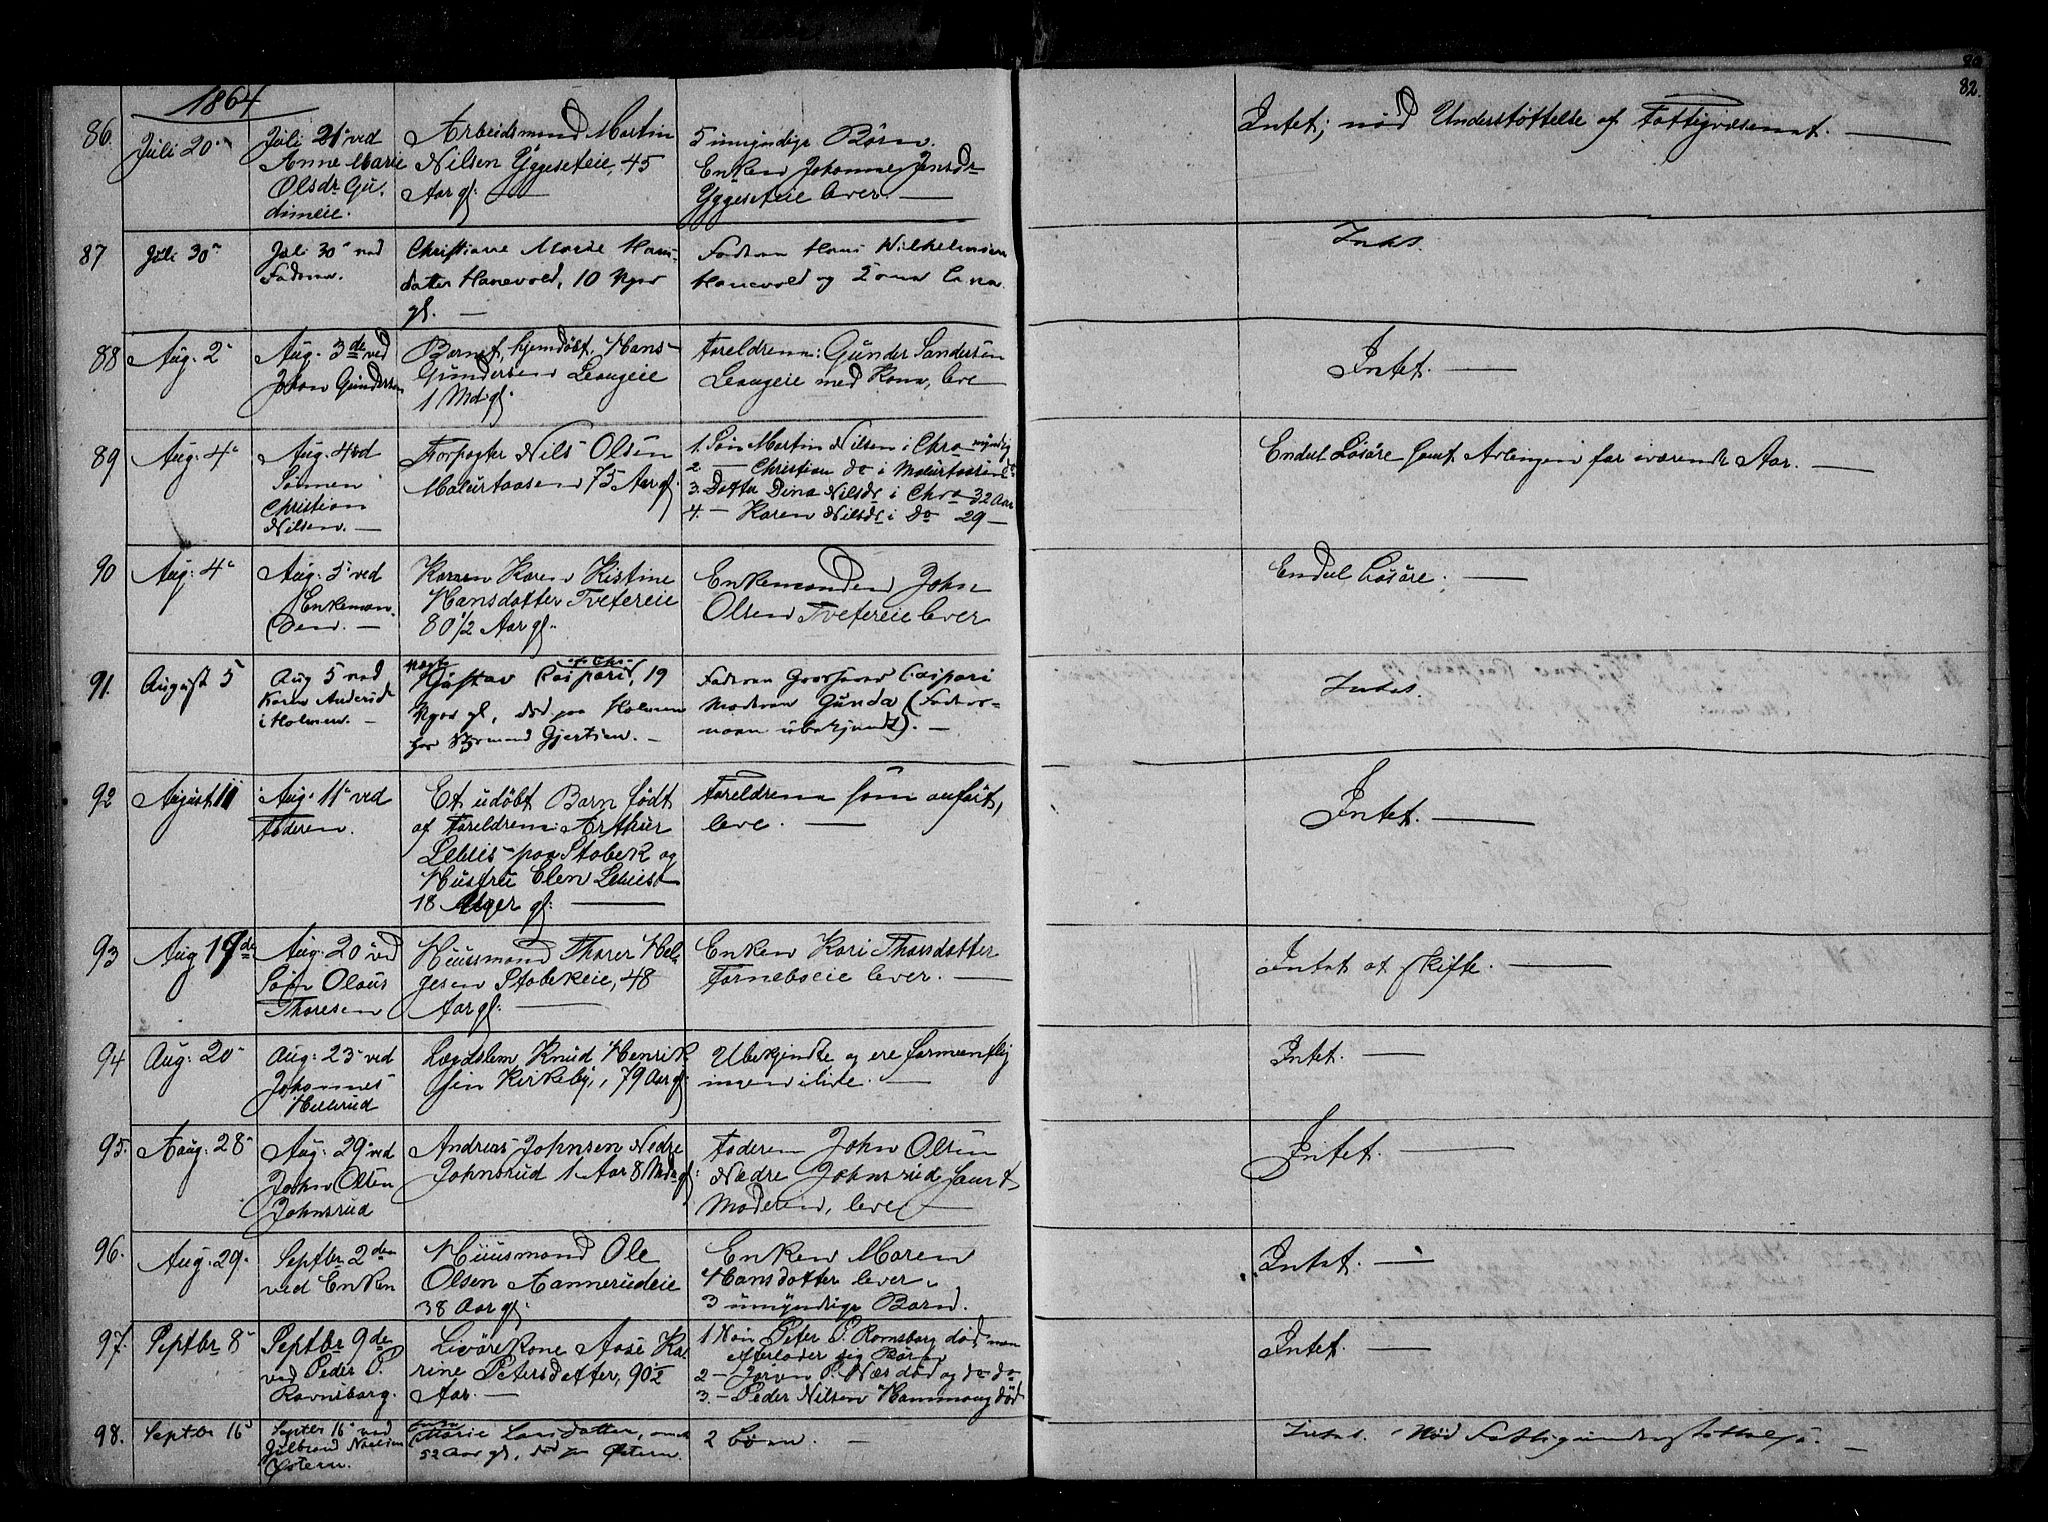 82.
1864
86.
Juli 20
Juli 21 ved
Anne Marie
Olsdr Gu
dimeie.
Arbeidsmand Martin
Nilsen Yggeseteie, 45
Aar gl.
5 umyndige Børn.
Enken Johanne Jensdr
Yggeseteie lever.
Intet; nød Understøttelse af Fattigvæsenet.
87
Juli 30
Juli 30 ved
Faderen.
Christiane Marie Hans-
datter Hanevold, 10 Uger
gl.
Faderen Hans Wilhelmsen
Hanevold og
Intet.
88
Aug. 2
Aug. 3de ved
Johan Gundersen
Barnet, hjemdøbt, Hans
Gundersen Leangeie
1 Md. gl.
Forældrene: Gunder Sandersen
Leangeie med Kone, leve
Intet.
89
Aug. 4
Aug. 4 ved
Sønnen
Christian
Nilsen.
Forpagter Nils Olsen
75 Aar gl.
1. Søn Martin Nilsen i Chra myndig
2 — Christian do i
3. Datter Dina Nilsdr i Chra 32 Aar
4. — Karen Nilsdr i Do 29 —
Endeel Løsøre samt Avlingen for nærværende Aar.
90
Aug: 4
Aug. 5 ved
Enkeman-
den.
Konen Karen Kistine
Hansdatter Tvetereie
80 1/2 Aar gl.
Enkemanden John
Olsen Tvetereie lever
Endeel Løsøre.
91.
August 5
Aug 5 ved
Karen Andersdr
i Holmen.
Gustav Caspari, 19
Uger gl, død paa Holmen
hos Gjertsen.
Faderen Caspari
Moderen Gunda (Fader-
navn ubekjendt).
Intet.
92
August 11
Aug. 11 ved
Faderen.
Et udøbt Barn født
af Forældrene: Arthur
paa Stabek og
Hustru Elen
18 Uger gl.
Forældrene som anført,
leve.
Intet.
93
Aug 19de
Aug. 20 ved
Søn Olaus
Thoresen
Huusmand Thorer Hel-
gesen Stabekeie, 48
Aar gl.
Enken Kari Thorsdatter
Forneboeie lever.
Intet at skifte.
94
Aug: 20
Aug: 23 ved
Johannes
Hellerud
Lægdslem Knud Henrik
sen Kirkeby, 79 Aar gl.
Ubekjendte og ere formentlig
ingen
Intet.
95.
Aaug. 28
Aug: 29 ved
John Olsen
Johnsrud
Andreas Johnsen Nedre
Johnsrud 1 Aar 8 Mdr gl.
Faderen John Olsen
Nedre Johnsrud samt
Moderen, leve
Intet.
96.
Aug. 29.
Septbr 2den
ved Enken
Huusmand Ole
Olsen Aannerudeie
38 Aar gl.
Enken Maren
Hansdatter lever.
3 umyndige Børn.
Intet.
97.
Septbr 8
Septbr 9de
ved Peder P.
Ravnsborg.
Kone Aase Ka
rine Petersdatter, 90 1/2
Aar.
1 Søn Peter P. død, men
efterlader sig Børn
2 — Jørgen P. Næs død og do do
3. — Peder Nilsen død
Intet.
98.
Septbr 16
Septbr 16 ved
Gulbrand
Østern.
Marie Larsdatter, omtr
52 Aar gl, død paa Østern.
2 Børn.
Intet. Nød Fattigunderstøttelse.